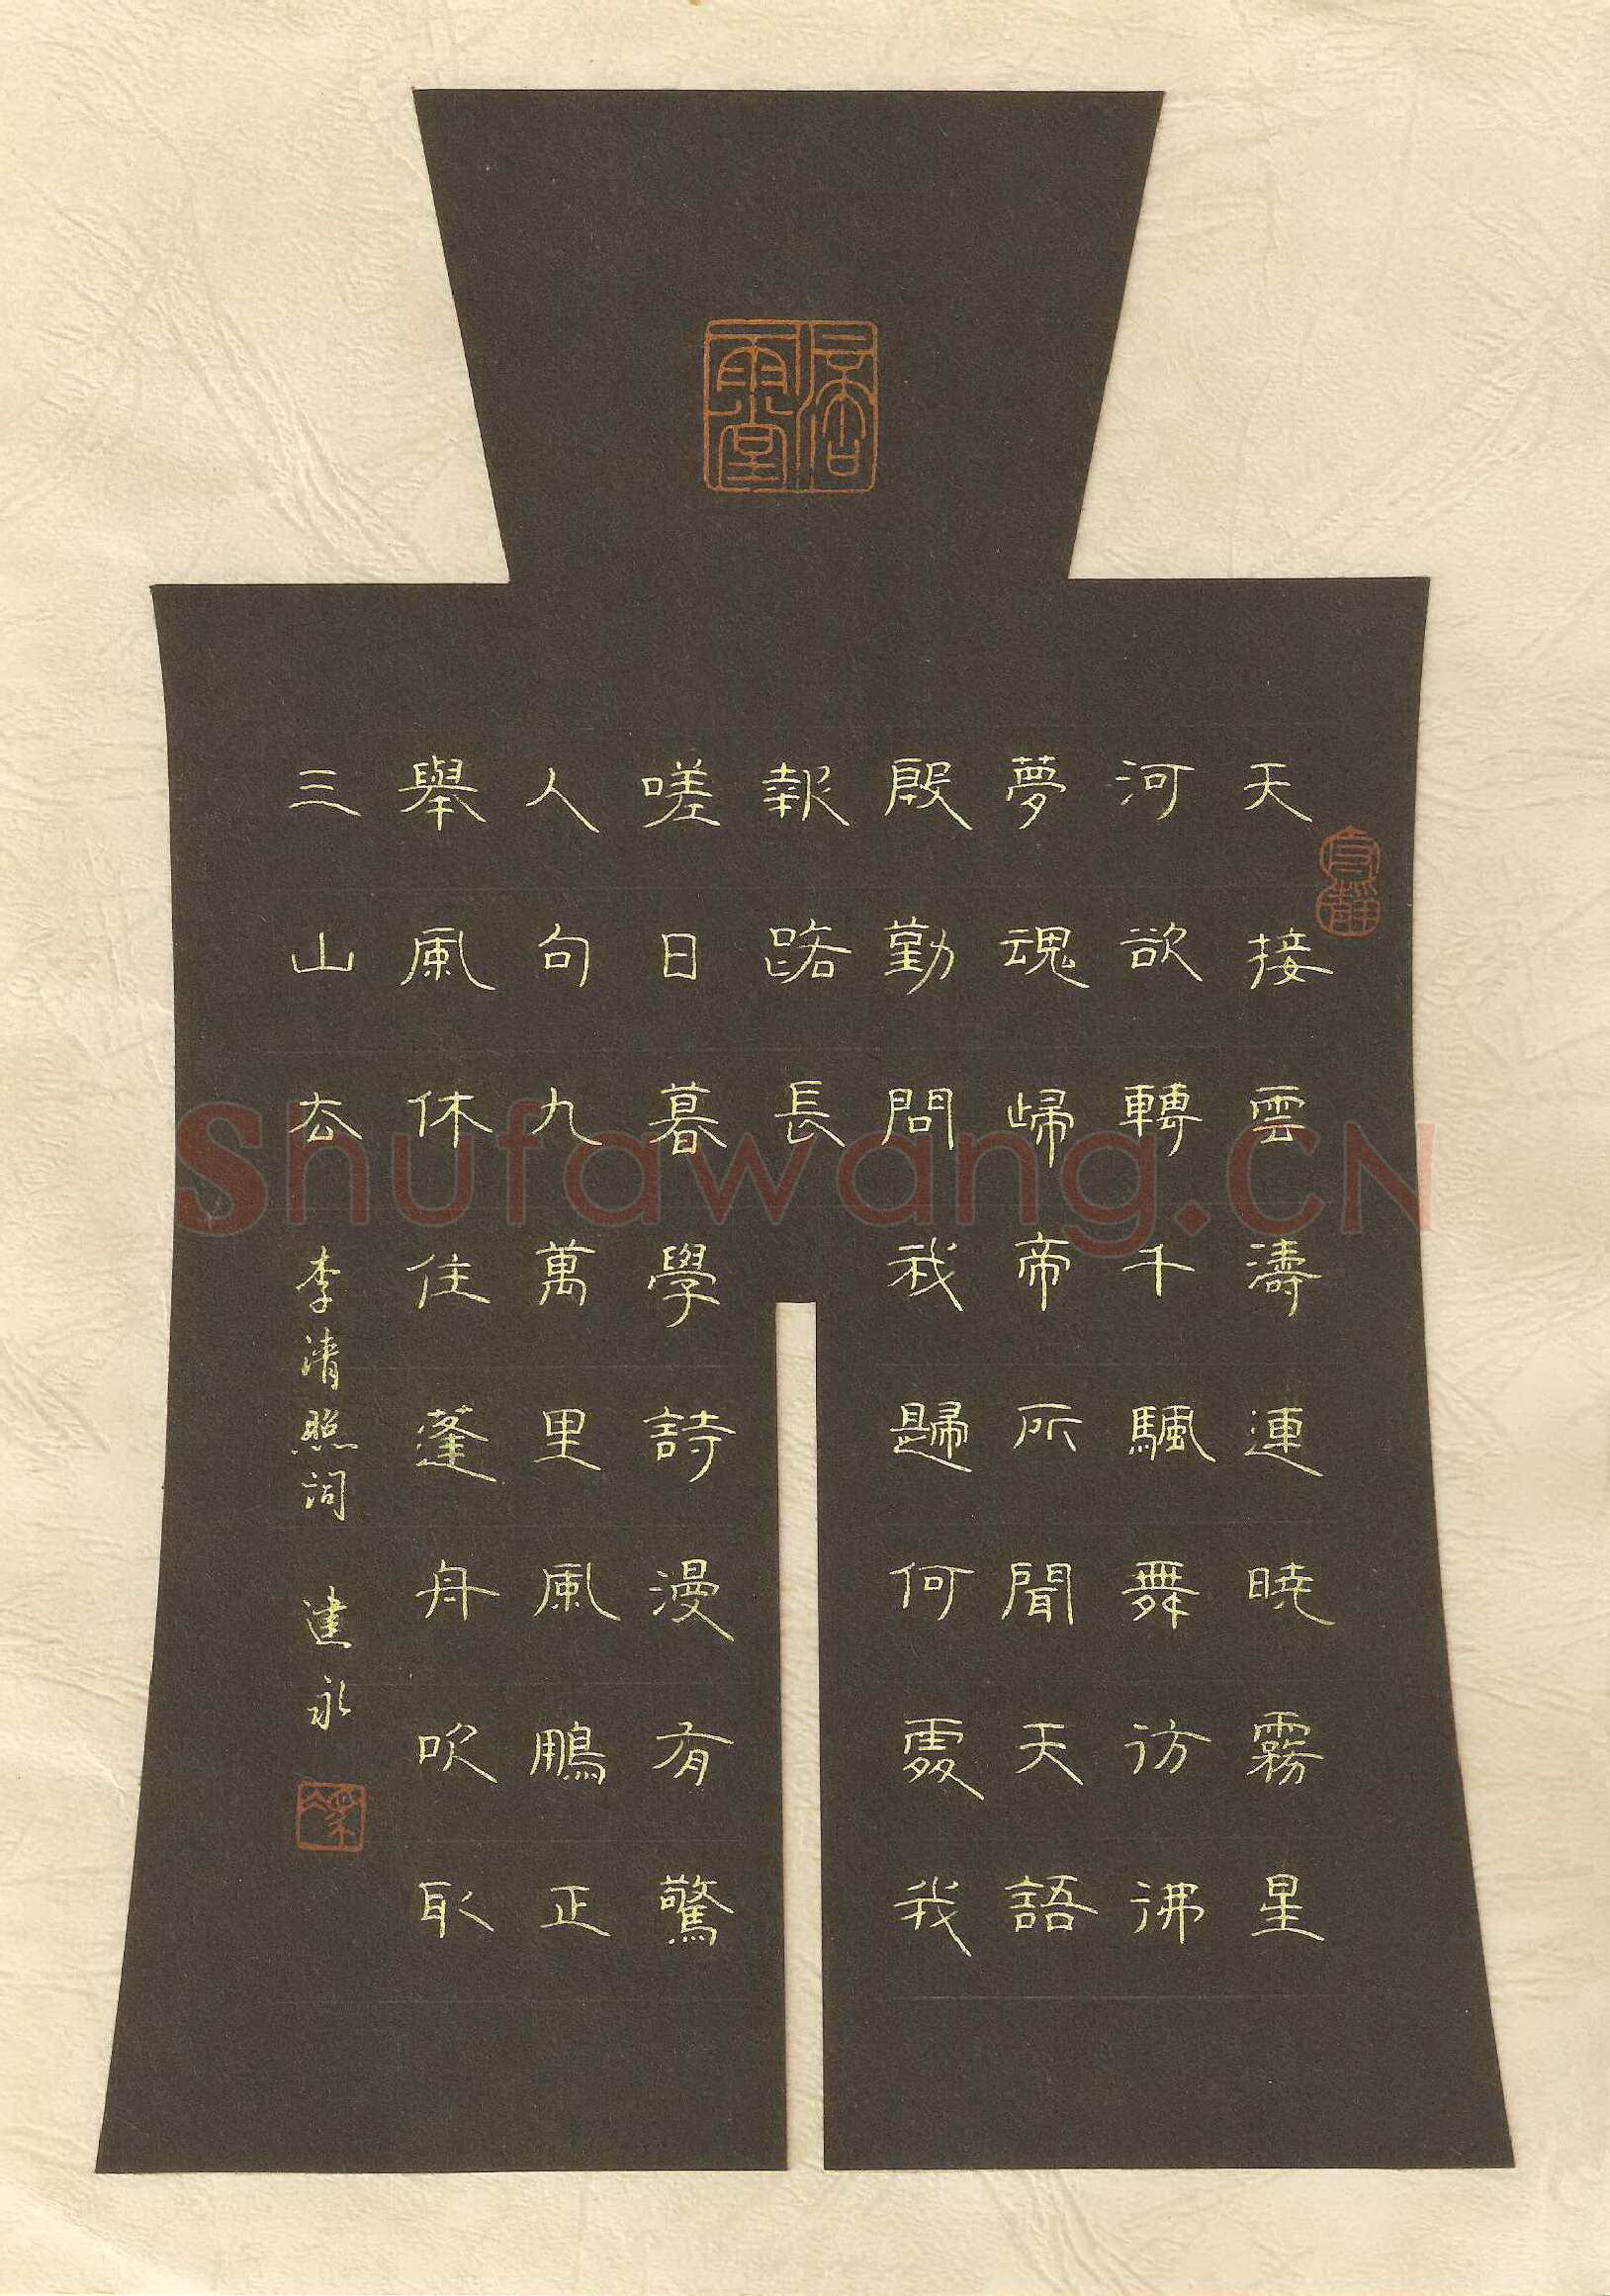 天接雲濤連曉霧星
河欲轉千颿舞彷彿
夢魂歸帝所聞天語
殷勤問我歸何處我
報路長
嗟日暮學詩漫有驚
人句九萬里風鵬正
舉風休住蓬舟吹取
三山去 李清照詞 建永
守靜
Shufawang.CN